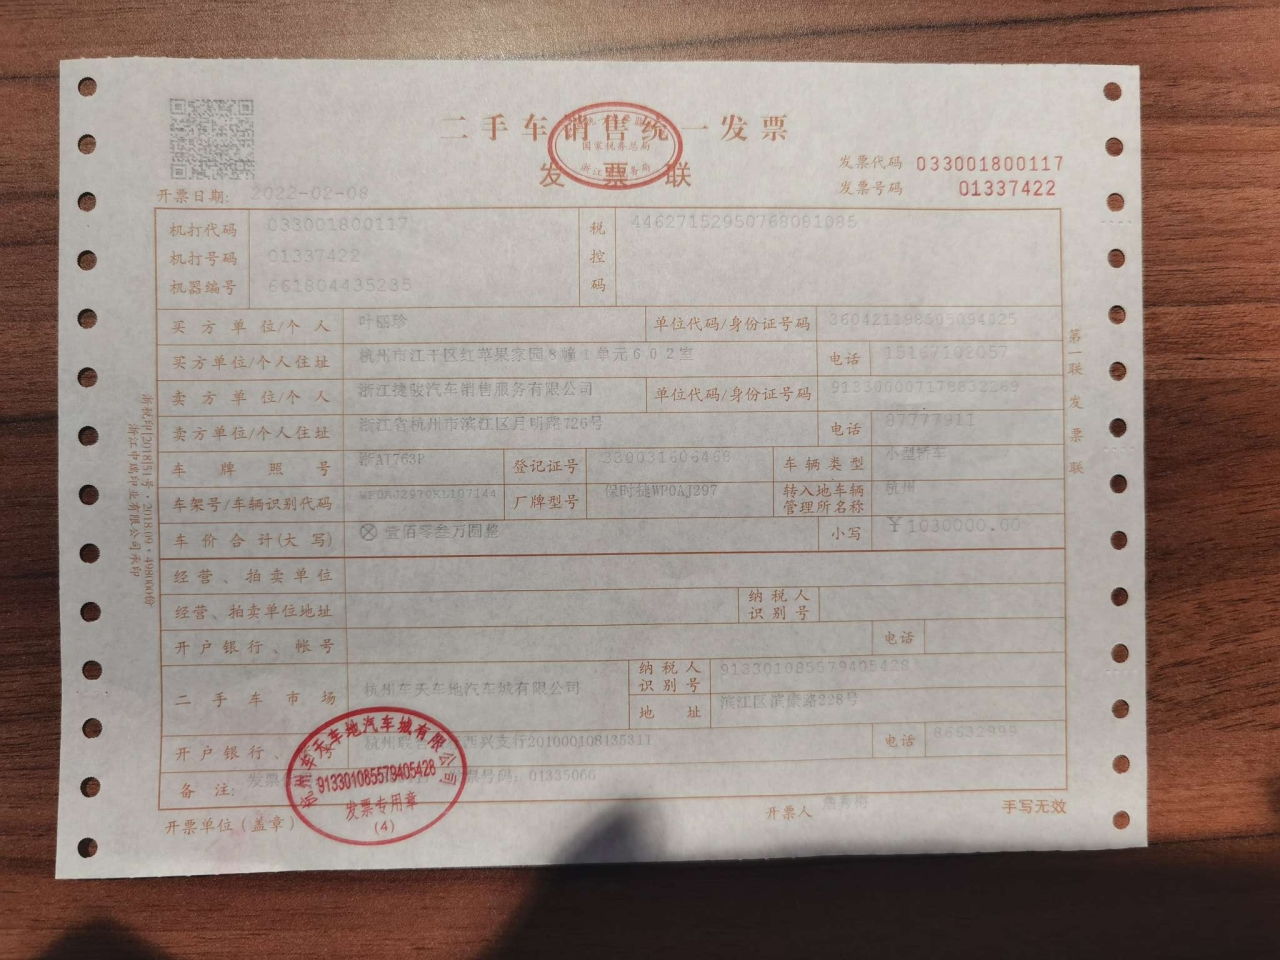 二手车销售统一发票
发票联
国家税务总局
发票代码 033001800117
发票号码 01337422
开票日期: 2022-02-08
机打代码 033001800117
机打号码 01337422
机器编号 661804435235
税控码 44627152950768091085
买方单位/个人 叶丽珍 单位代码/身份证号码
买方单位/个人住址 杭州市江干区红苹果家园8幢1单元602室 电话 15167102057
卖方单位/个人 浙江捷骏汽车销售服务有限公司 单位代码/身份证号码 913300007178832269
卖方单位/个人住址 浙江省杭州市滨江区月明路726号 电话 87777911
车牌照号 浙AT763P 登记证号 330031606468 车辆类型 小型轿车
车架号/车辆识别代码 厂牌型号 保时捷WP0AJ297 转入地车辆管理所名称 杭州
车价合计(大写) ⊗壹佰零叁万圆整 小写 ￥1030000.00
经营、拍卖单位
经营、拍卖单位地址 纳税人识别号
开户银行、帐号 电话
二手车市场 杭州车天车地汽车城有限公司 纳税人识别号 913301085579405428
地址 滨江区滨康路228号
开户银行、 杭州联 西兴支行201000108135311 电话 86632999
备注: 发票 票号码: 01335066
杭州车天车地汽车城有限公司
913301085579405428
发票专用章
(4)
开票单位(盖章) 开票人 手写无效
第一联 发票联